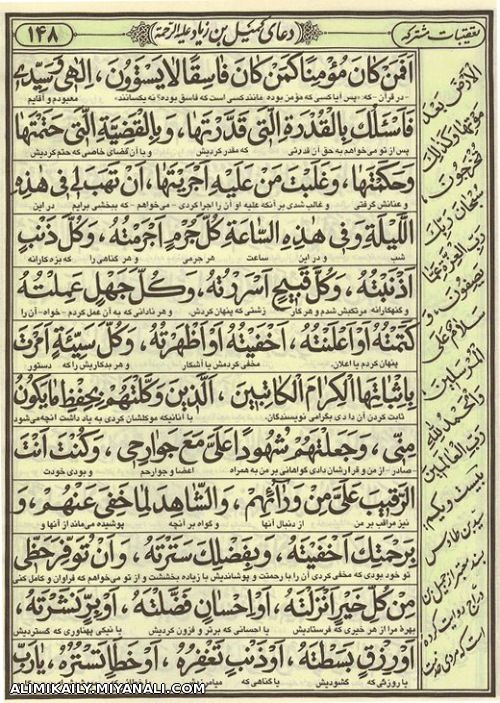 تعقیبات مشترکه
(دعای کمیل بن زیاد علیه الرحمة)
۱۴۸
اَفَمَنْ كَانَ مُؤْمِنًا كَمَنْ كَانَ فَاسِقًا لَا يَسْتَوُونَ، اِلٰهِي وَ سَيِّدِي
معبودم و آقایم
فَاَسْئَلُكَ بِالْقُدْرَةِ الَّتِي قَدَّرْتَهَا، وَ بِالْقَضِيَّةِ الَّتِي حَتَمْتَهَا
پس از تو می‌خواهم به حق آن قدرتی که مقدر کردیش و با آن قضای خاصی که حتم کردیش
وَ حَكَمْتَهَا، وَ غَلَبْتَ مَنْ عَلَيْهِ اَجْرَيْتَهَا، اَنْ تَهَبَ لِي فِي هٰذِهِ
و غالب شدی بر آنکه علیه او آن را اجرا کردی - می‌خواهم - که ببخشی برایم در این
اللَّيْلَةِ وَ فِي هٰذِهِ السَّاعَةِ كُلَّ جُرْمٍ اَجْرَمْتُهُ، وَ كُلَّ ذَنْبٍ
شب و در این ساعت هر جرمی و هر گناهی را که بزه‌کارانه
اَذْنَبْتُهُ، وَ كُلَّ قَبِيحٍ اَسْرَرْتُهُ، وَ كُلَّ جَهْلٍ عَمِلْتُهُ
و گنهکارانه مرتکبش شدم و هر کار زشتی که پنهان کردش، و هر نادانی که به آن عمل کردم -خواه- آن را
كَتَمْتُهُ اَوْ اَعْلَنْتُهُ، اَخْفَيْتُهُ اَوْ اَظْهَرْتُهُ، وَ كُلَّ سَيِّئَةٍ اَمَرْتَ
پنهان کردم یا اعلان. مخفی کردمش یا آشکار و هر بدکاریش را که دستور
بِاِثْبَاتِهَا الْكِرَامَ الْكَاتِبِينَ، الَّذِينَ وَكَّلْتَهُمْ بِحِفْظِ مَا يَكُونُ
ثابت کردن آن دادی بگرامی نویسندگان. با آنانیکه موکلشان کردی به یاد داشت آنچه می‌شود
مِنِّي، وَ جَعَلْتَهُمْ شُهُودًا عَلَيَّ مَعَ جَوَارِحِي، وَ كُنْتَ اَنْتَ
صادر - از من و قرارشان دادی گواهانی بر من به همراه اعضا و جوارحم و بودی خودت
الرَّقِيبَ عَلَيَّ مِنْ وَرَائِهِمْ، وَ الشَّاهِدَ لِمَا خَفِيَ عَنْهُمْ، وَ
نیز مراقب بر من از دنبال آنها و گواه بر آنچه پوشیده می‌ماند از آنها و
بِرَحْمَتِكَ اَخْفَيْتَهُ، وَ بِفَضْلِكَ سَتَرْتَهُ، وَ اَنْ تُوَفِّرَ حَظِّي
تو خود بودی که مخفی کردی آن را با رحمتت و پوشاندیش با زیاده بخششت و از تو می‌خواهم که فراوان و کامل کنی
مِنْ كُلِّ خَيْرٍ اَنْزَلْتَهُ، اَوْ اِحْسَانٍ فَضَّلْتَهُ، اَوْ بِرٍّ نَشَرْتَهُ،
بهره مرا از هر خیری که فرستادیش یا احسانی که برتر و فزون کردیش یا نیکی پهناوری که گستردیش
اَوْ رِزْقٍ بَسَطْتَهُ، اَوْ ذَنْبٍ تَغْفِرُهُ، اَوْ خَطَاٍ تَسْتُرُهُ، يَا رَبِّ
یا روزئی که گشودیش یا گناهی که
الْاَرْضَ بَعْدَ
مَوْتِهَا وَ كَذٰلِكَ
تُخْرَجُونَ،
سُبْحَانَ رَبِّكَ
رَبِّ الْعِزَّةِ عَمَّا
يَصِفُونَ، وَ
سَلَامٌ عَلَى
الْمُرْسَلِينَ،
وَ الْحَمْدُ لِلّٰهِ
رَبِّ الْعَالَمِينَ
بیست و یکم:
سید بن طاوس
بسند معتبر از جمیل بن
دراج روایت کرده
است که مردی خدمت
ALIMIKAILY.MIYANALI.COM